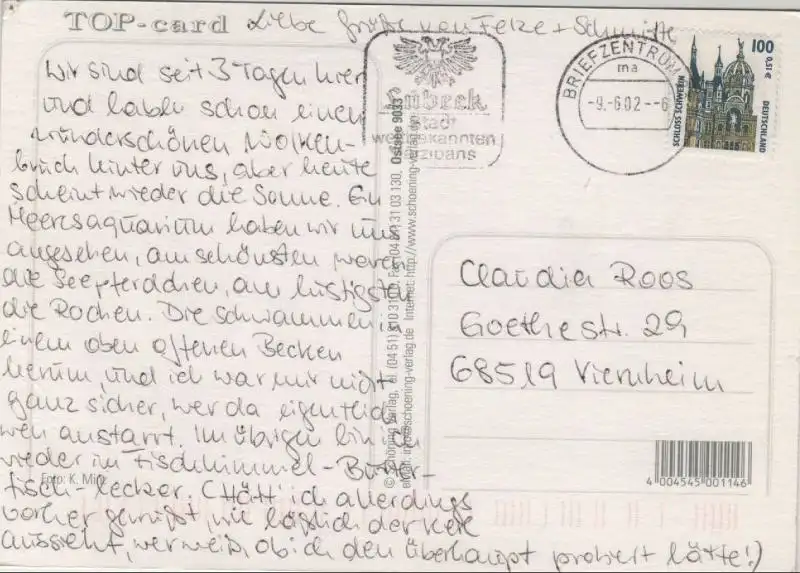 TOP-card Liebe Grüße von Felze + Schmitti
Wir sind seit 3 Tagen hier
und haben schon einen
wunderschönen Wolken-
bruch hinter uns, aber heute
scheint wieder die Sonne. Ein
Meeresaquarium haben wir uns
angesehen, am schönsten waren
die Seepferdchen, am lustigsten
die Rochen. Die schwammen in
einem oben offenen Becken
herum, und ich war mir nicht
ganz sicher, wer da eigentlich
wen anstarrt. Im übrigen bin ich
wieder im Fischhimmel - Butter-
fisch - lecker. (Hätt' ich allerdings
vorher gewußt, wie häßlich der Kerl
aussieht, wer weiß, ob ich den überhaupt probiert hätte!)
Foto: K. Mintz
Lübeck
Stadt
weltbekannten
Marzipans
BRIEFZENTRUM
ma
-9.-6.02--6
100
0,51€
SCHLOSS SCHWERIN
DEUTSCHLAND
Ostsee 9033
© Schöning Verlag, Tel. (04 51) 3 10 31 0, Fax (04 51) 31 03 130.
eMail: info@schoening-verlag.de Internet: http://www.schoening-verlag.de
Claudia Roos
Goethestr. 29
68519 Viernheim
4 004545 001146